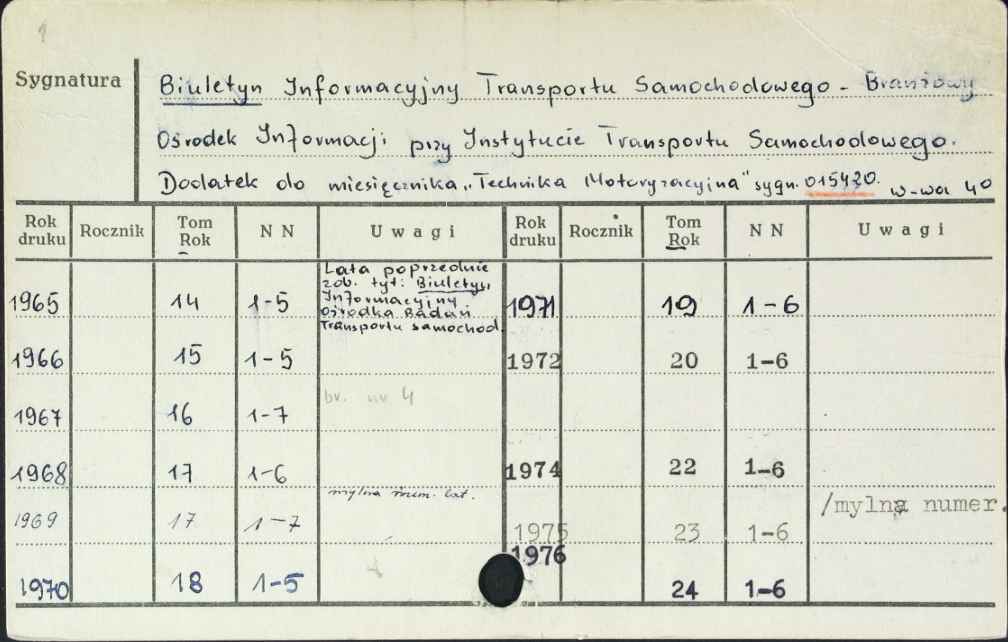 1
Sygnatura
Biuletyn Informacyjny Transportu Samochodowego - Branżowy
Ośrodek Informacji przy Instytucie Transportu Samochodowego.
Dodatek do miesięcznika „Technika Motoryzacyjna" sygn. 015420. W-wa 40
Rok druku Rocznik Tom Rok N N Uwagi Rok druku Rocznik Tom Rok N N Uwagi
Lata poprzednie
zob. tyt: Biuletyn
Informacyjny
Ośrodka Badań
Transportu samochod.
1965 14 1-5 1971 19 1-6
1966 15 1-5 1972 20 1-6
br. nr 4
1967 16 1-7
1968 17 1-6 1974 22 1-6
mylna num. lat.
1969 17 1-7 1975 23 1-6 /mylna numer.
1976
1970 18 1-5 24 1-6